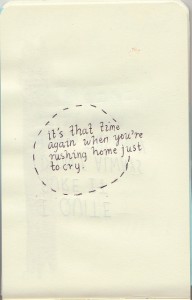 it's that time
again when you're
rushing home just
to cry.